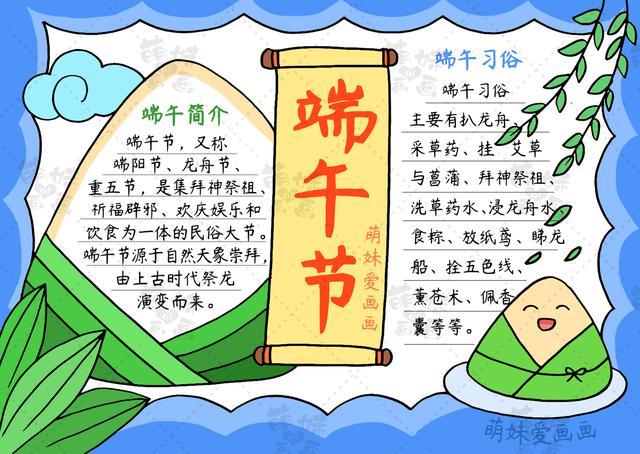 端午简介
端午节，又称
端阳节、龙舟节、
重五节，是集拜神祭祖、
祈福辟邪、欢庆娱乐和
饮食为一体的民俗大节。
端午节源于自然天象崇拜，
由上古时代祭龙
演变而来。
端午节
萌妹爱画画
端午习俗
端午习俗
主要有扒龙舟、
采草药、挂艾草
与菖蒲、拜神祭祖、
洗草药水、浸龙舟水
食粽、放纸鸢、睇龙
船、拴五色线、
薰苍术、佩香
囊等等。
萌妹爱画画